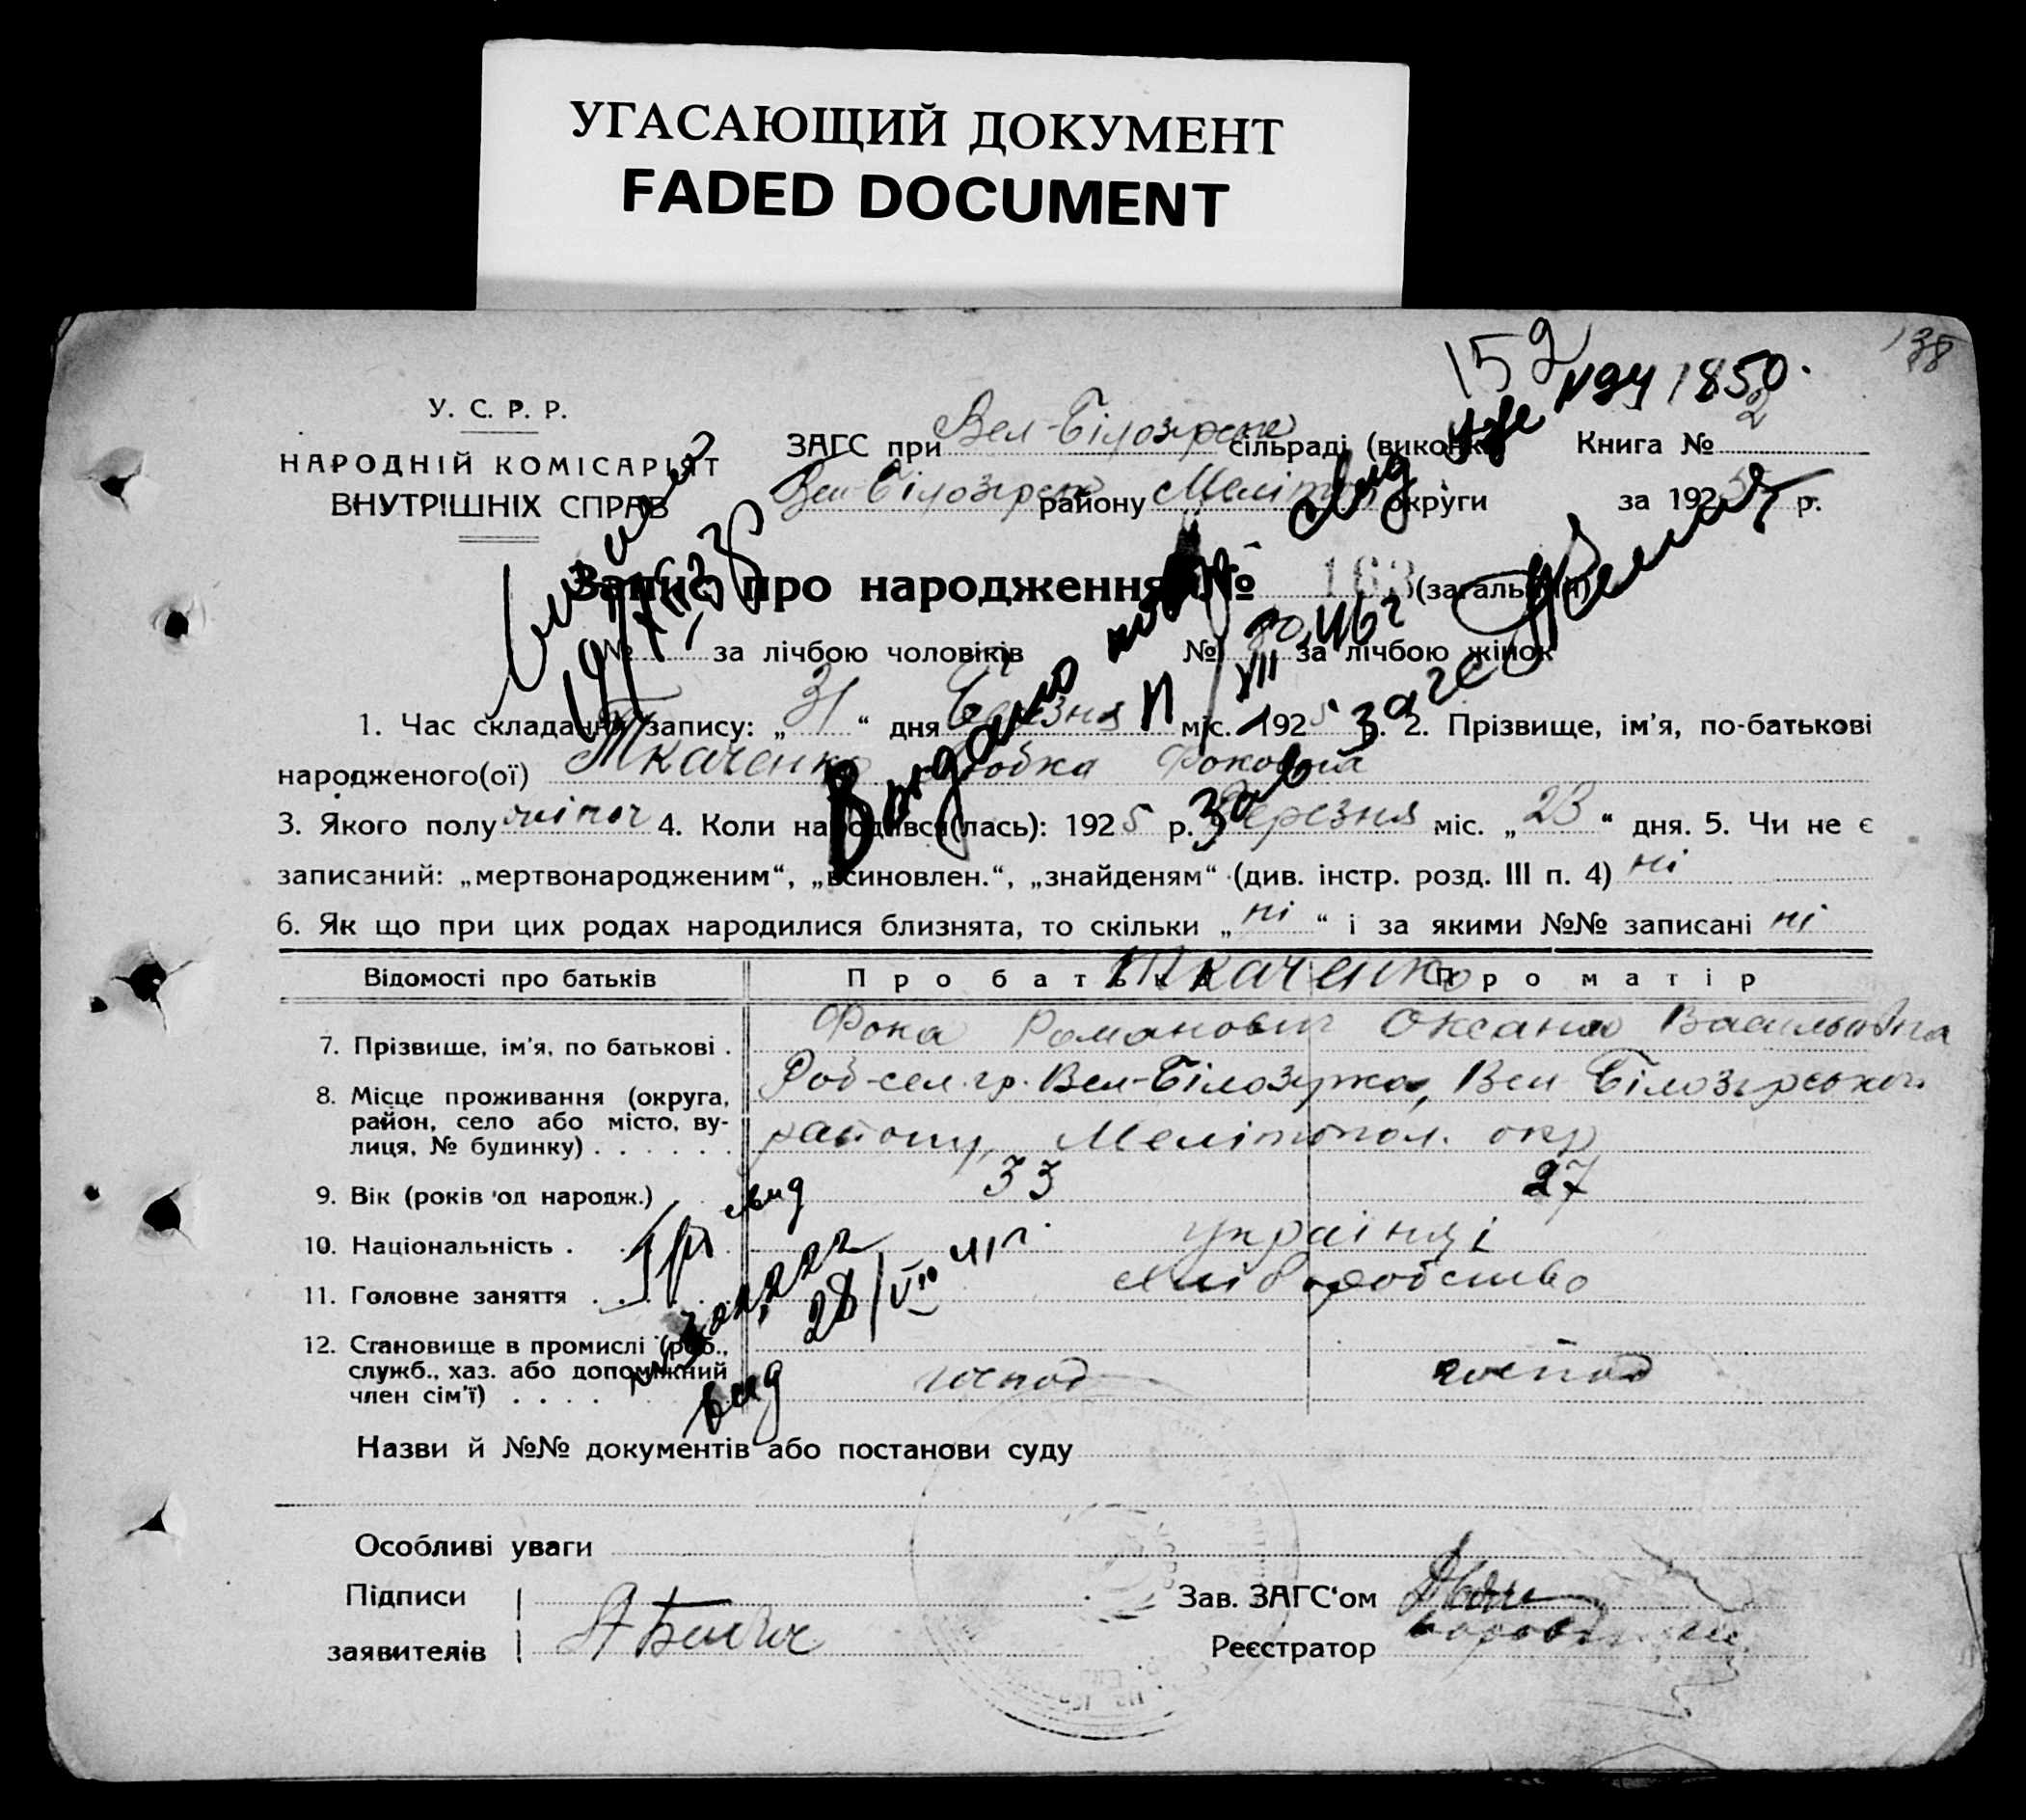 УГАСАЮЩИЙ ДОКУМЕНТ
FADED DOCUMENT
138
152
1850.
У. С. Р. Р.
НАРОДНІЙ КОМІСАРІЯТ
ВНУТРІШНІХ СПРАВ
ЗАГС при Вел-Білозірське сільраді (виконк Книга № 2
Вел-Білозірськ району Меліт округи за 192 р.
Запис про народження № 163 (загальний)
№ за лічбою чоловіків № за лічбою жінок
Видано пов свид
Зав загс
1. Час складання запису: „ 31 “ дня Березня міс. 1925 р. 2. Прізвище, ім'я, по-батькові
народженого(ої) Ткаченко Фоковна
3. Якого полу жіноч 4. Коли народився(лась): 1925 р. Березня міс. „ 23 “ дня. 5. Чи не є
записаний: „мертвонародженим“, „всиновлен.“, „знайденям“ (див. інстр. розд. III п. 4) ні
6. Як що при цих родах народилися близнята, то скільки „ ні “ і за якими №№ записані ні
Відомості про батьків Про батька Про матір
Ткаченко
7. Прізвище, ім'я, по батькові . Фока Романович Оксана Васильовна
8. Місце проживання (округа, район, село або місто, вулиця, № будинку) . . . . . . Роб-сел. гр. Вел-Білозірка, Вел Білозірського
району, Мелітопол. окр
9. Вік (років од народж.) 33 27
10. Національність . українці
11. Головне заняття . . . хліборобство
28/VIII 41 г.
12. Становище в промислі (роб., служб., хаз. або допоміжний член сім'ї) . . . . господ господ
Назви й №№ документів або постанови суду
Особливі уваги
Підписи
заявителів
Зав. ЗАГС'ом
Реєстратор